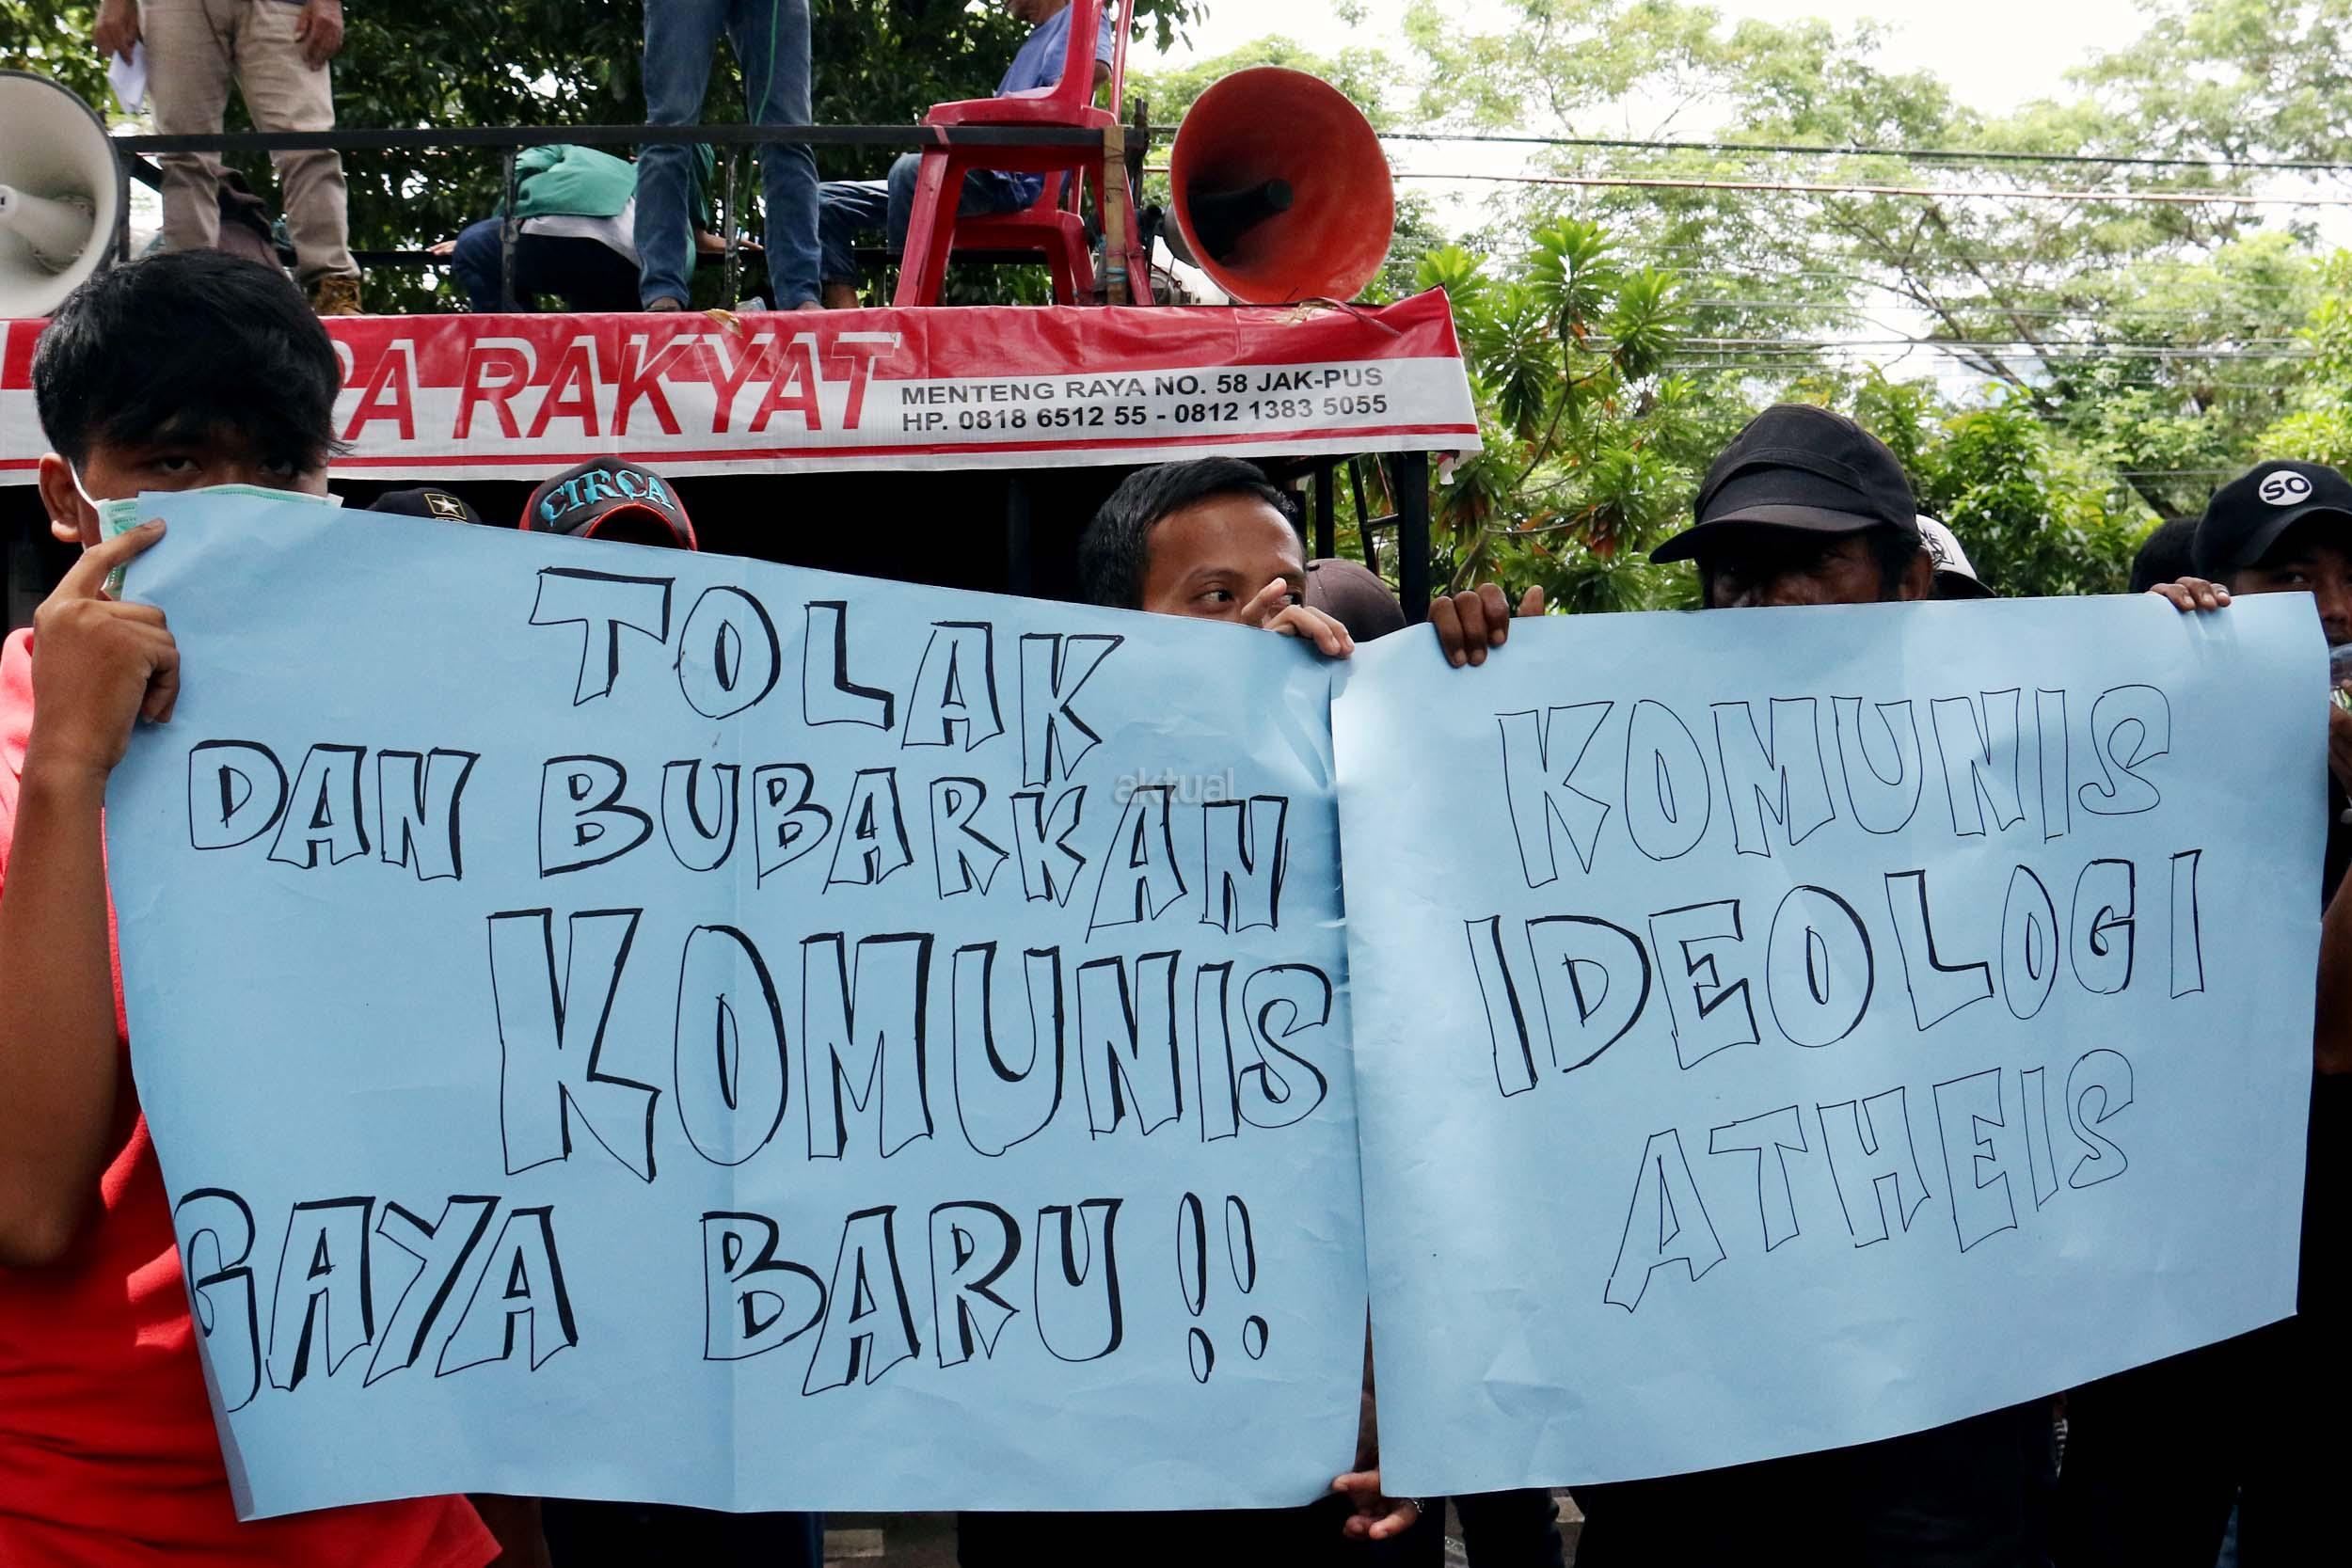 RA RAKYAT
MENTENG RAYA NO. 58 JAK-PUS
HP. 0818 6512 55 - 0812 1383 5055
CIRCA
SO
TOLAK
DAN BUBARKAN
KOMUNIS
GAYA BARU!!
aktual
KOMUNIS
IDEOLOGI
ATHEIS